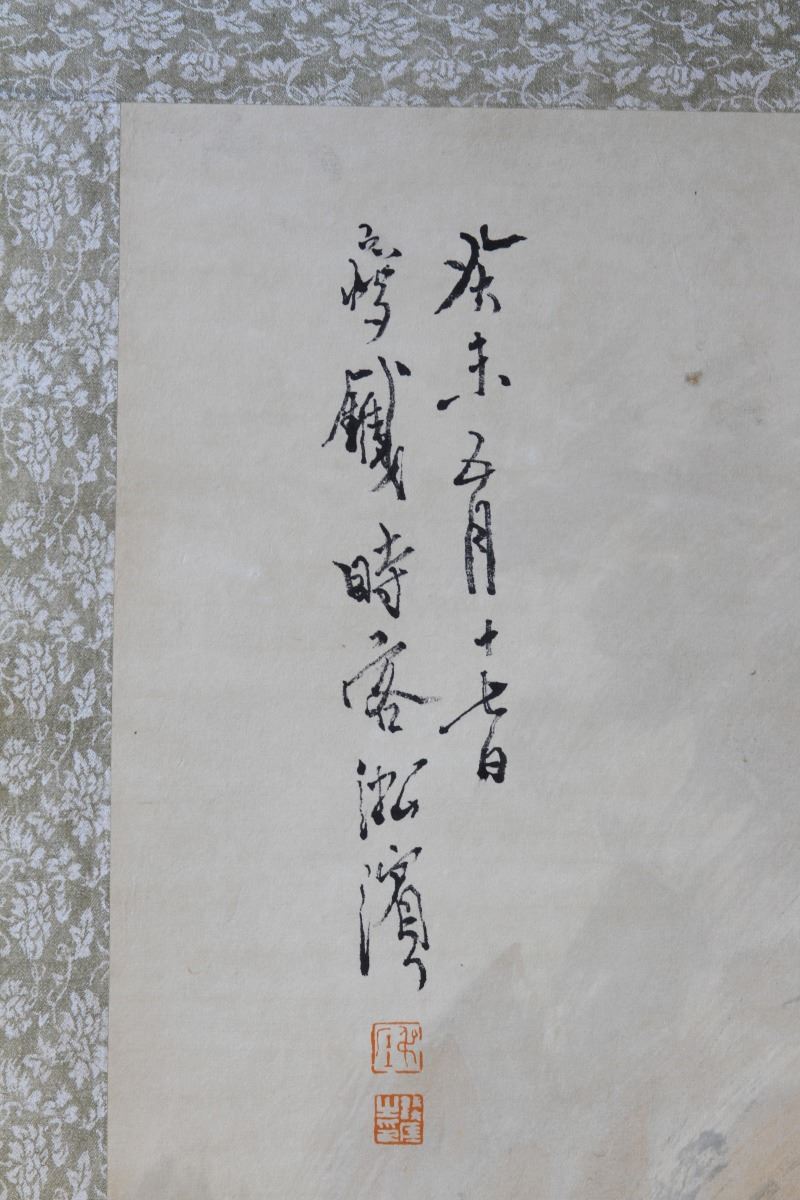 癸未五月十七日
鐵時客淞濱